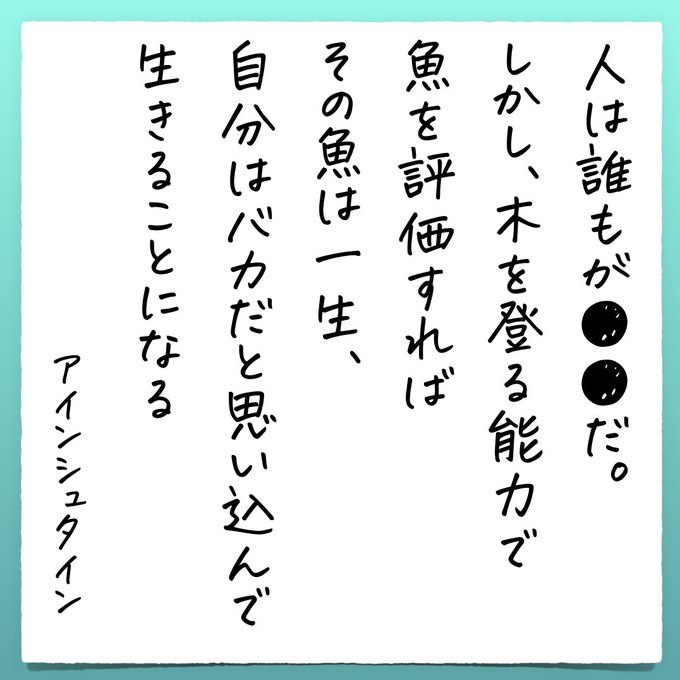 人は誰もが●●だ。
しかし、木を登る能力で
魚を評価すれば
その魚は一生、
自分はバカだと思い込んで
生きることになる
アインシュタイン